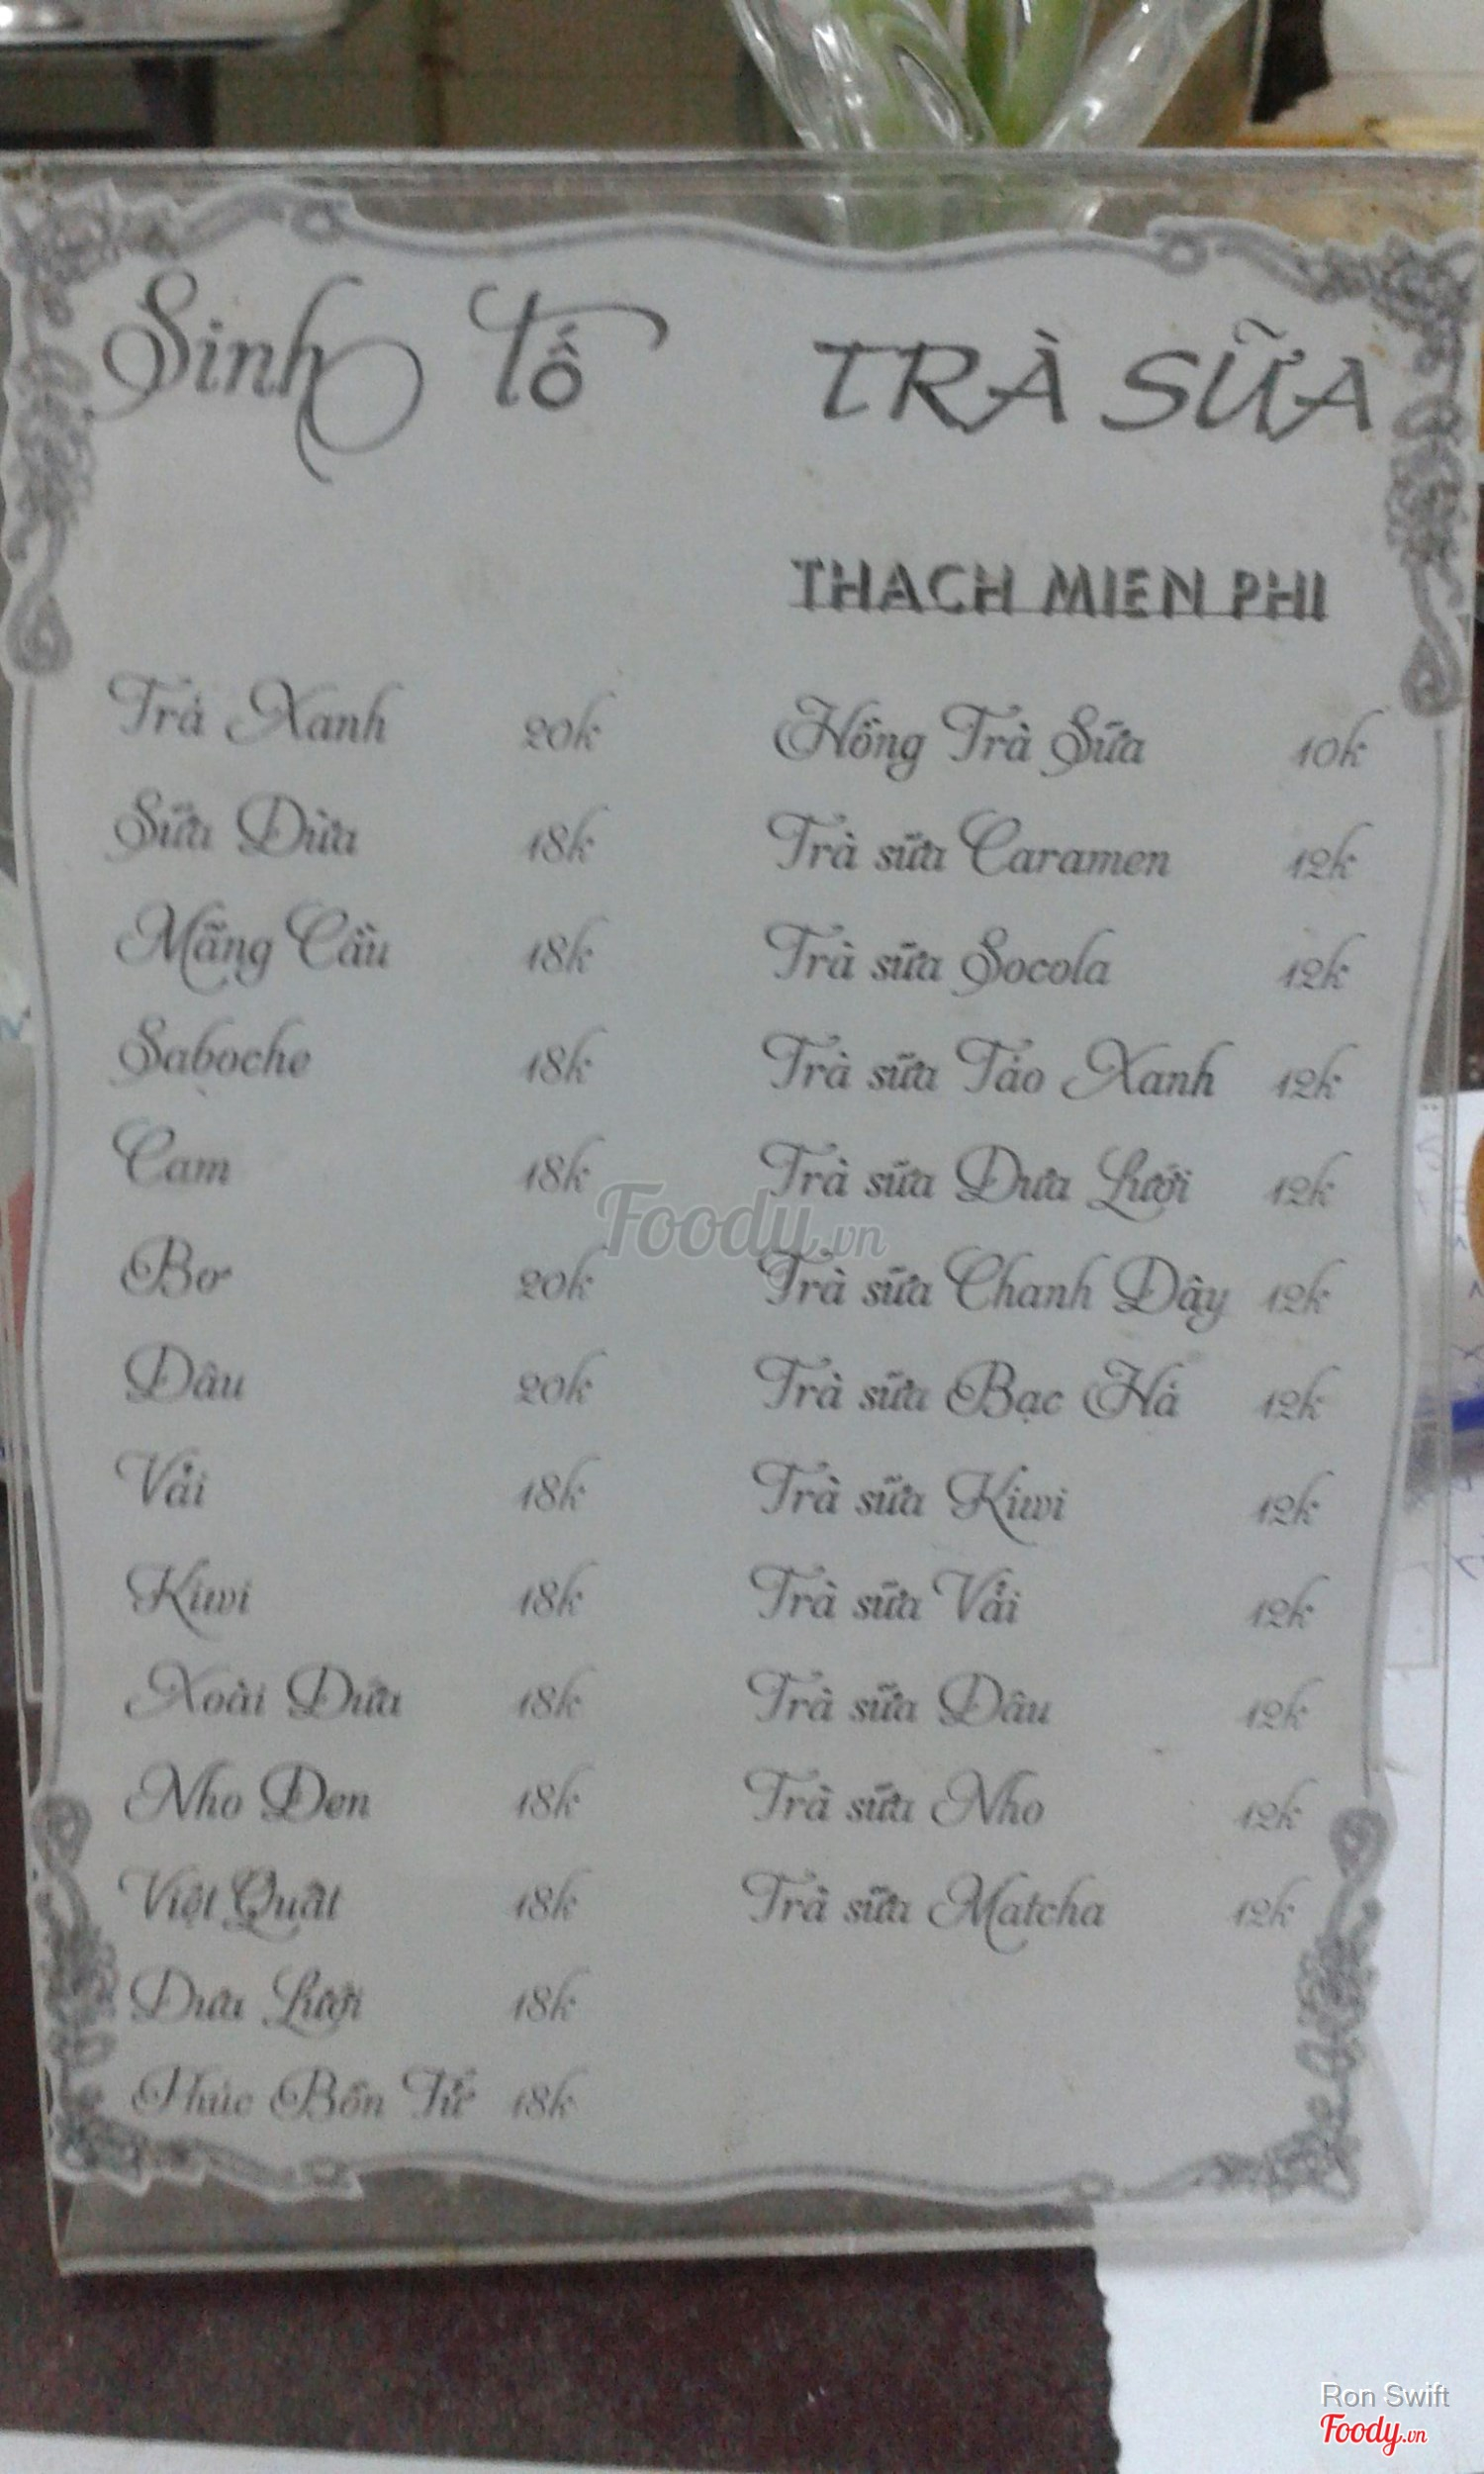 Sinh tố
Trà Xanh 20k
Sữa Dừa 18k
Mãng Cầu 18k
Saboche 18k
Cam 18k
Bơ 20k
Dâu 20k
Vải 18k
Kiwi 18k
Xoài Dứa 18k
Nho Đen 18k
Việt Quất 18k
Dưa Lưới 18k
Phúc Bồn Tử 18k
TRÀ SỮA
THACH MIEN PHI
Hồng Trà Sữa 10k
Trà sữa Caramen 12k
Trà sữa Socola 12k
Trà sữa Táo Xanh 12k
Trà sữa Dưa Lưới 12k
Trà sữa Chanh Dây 12k
Trà sữa Bạc Hà 12k
Trà sữa Kiwi 12k
Trà sữa Vải 12k
Trà sữa Dâu 12k
Trà sữa Nho 12k
Trà sữa Matcha 12k
Foody.vn
Ron Swift
Foody.vn